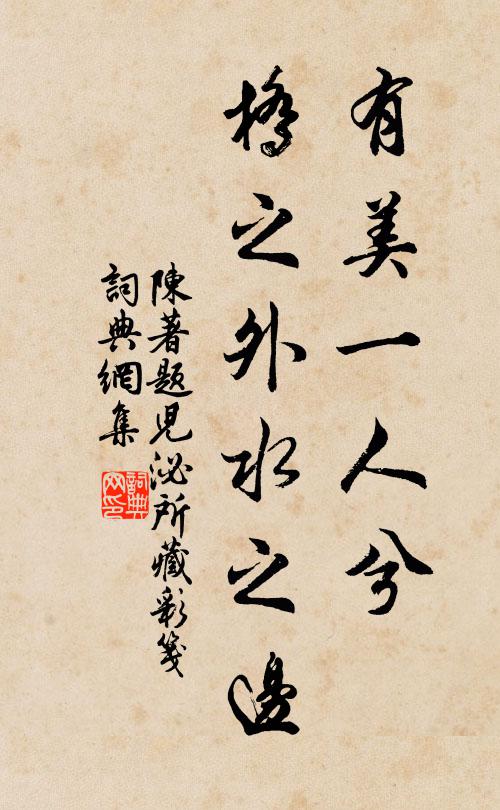 有美一人兮
橋之外水之邊
陳著題兒泌所藏彩箋
詞典網集
詞典
网印